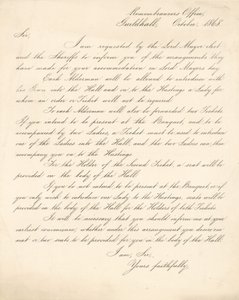 Remembrancers Office,
Guildhall, October, 1868.
Sir,
I am requested by the Lord Mayor elect
and the Sheriffs to inform you of the arrangements they
have made for your accommodation on Lord Mayors day.
Each Alderman will be allowed to introduce with
his Gown into the Hall and on to the Hustings a Lady for
whom an order or Ticket will not be required.
To each Alderman will also be forwarded two Tickets
If you intend to be present at the Banquet, and to be
accompanied by two Ladies, a Ticket must be used to introduce
one of the Ladies into the Hall, and the two Ladies can then
accompany you to the Hustings.
For the Holder of the second Ticket a seat will be
provided in the body of the Hall.
If you do not intend to be present at the Banquet, or if
you only wish to introduce one Lady to the Hustings, seats will be
provided in the body of the Hall for the Holders of both Tickets.
It will be necessary that you should inform me at your
earliest convenience, whether under this arrangement you desire
one or two seats to be provided for you in the body of the Hall.
I am, Sir,
Yours faithfully,